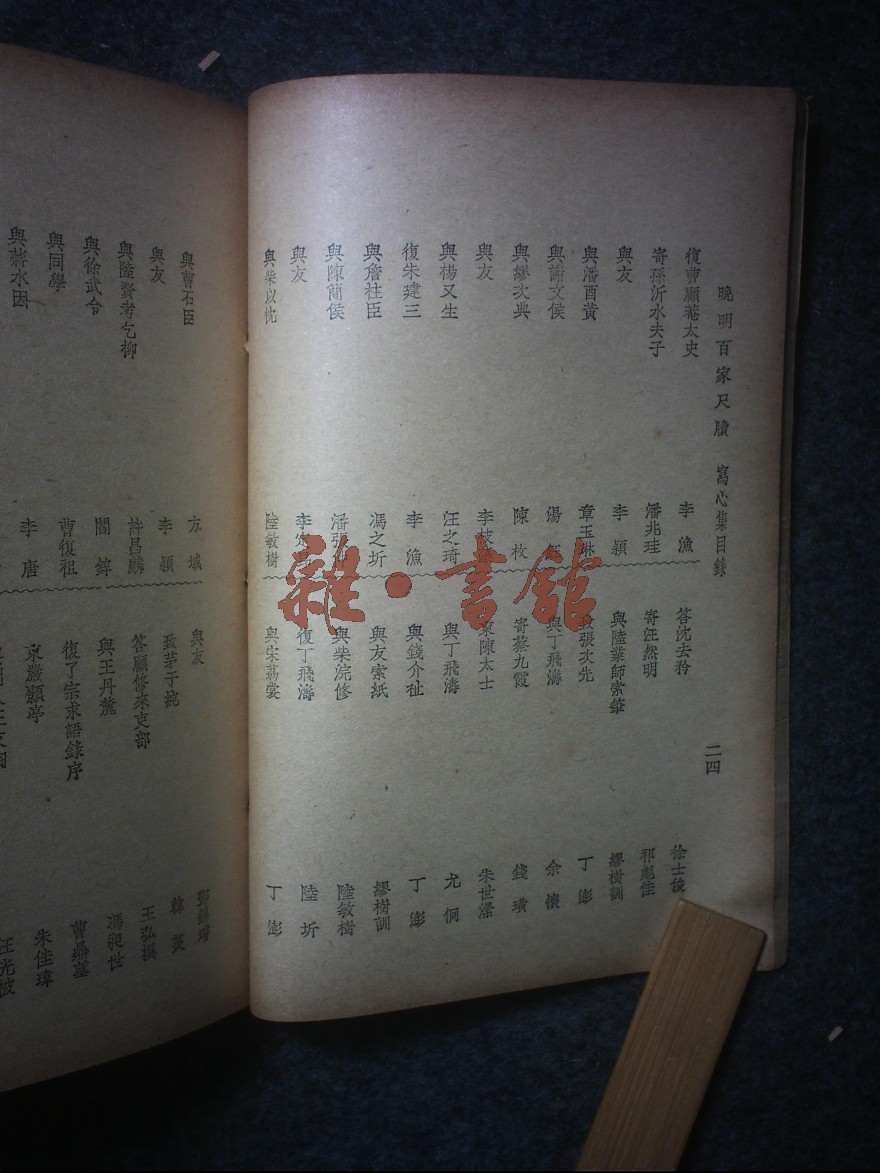 曉明百家尺牘 寫心集目錄
二四
復曹顧菴太史 李漁
寄孫沂水夫子 潘兆珪
與友 李穎
與潘酉黃 章玉琳
與謝文侯 湯
與繆次典 陳枚
與友 李枝
與楊又生 汪之琦
復朱建三 李漁
與詹柱臣 馮之圻
與陳簡侯 潘
與友 李
與柴以忱 陸敏樹
答沈去矜 徐士俊
寄汪然明 祁彪佳
與陸業師索筆 繆樹訓
致張次先 丁澎
與丁飛濤 余懷
寄蔡九霞 錢璜
柬陳太士 朱世滌
與丁飛濤 尤侗
與錢介祉 丁澎
與友索紙 繆樹訓
與柴浣修 陸敏樹
復丁飛濤 陸圻
與宋荔裳 丁澎
雜·書館
與曹石臣 方城
與友 李穎
與陸賢考乞柳 許昌麟
與徐武令 閻鋅
與同學 曹復祖
與蔣水因 李唐
與友
致茅于純 韓菼
答顧修來吏部 王弘撰
與王丹麓 馮昶世
復了宗求語錄序 曹鼎
柬嚴顥亭 朱佳瑋
汪光被